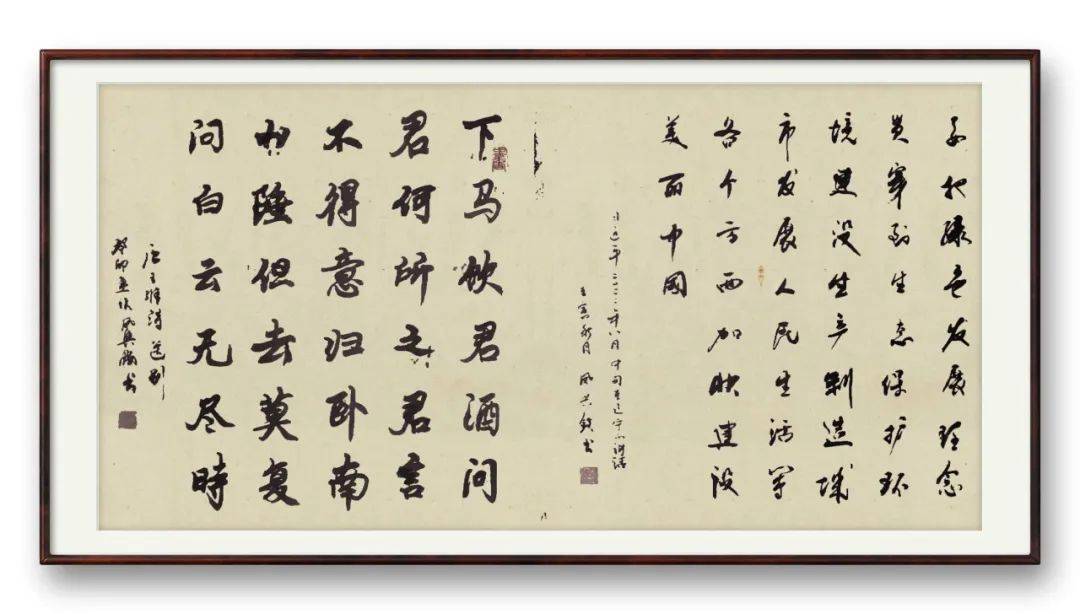 要把绿色发展理念
贯穿到生态保护环
境建设生产制造城
市发展人民生活等
各个方面加快建设
美丽中国
年八月
讲话
壬寅秋月
书
下马饮君酒问
君何所之君言
不得意归卧南
山陲但去莫复
问白云无尽時
唐王维诗送别
癸卯
书